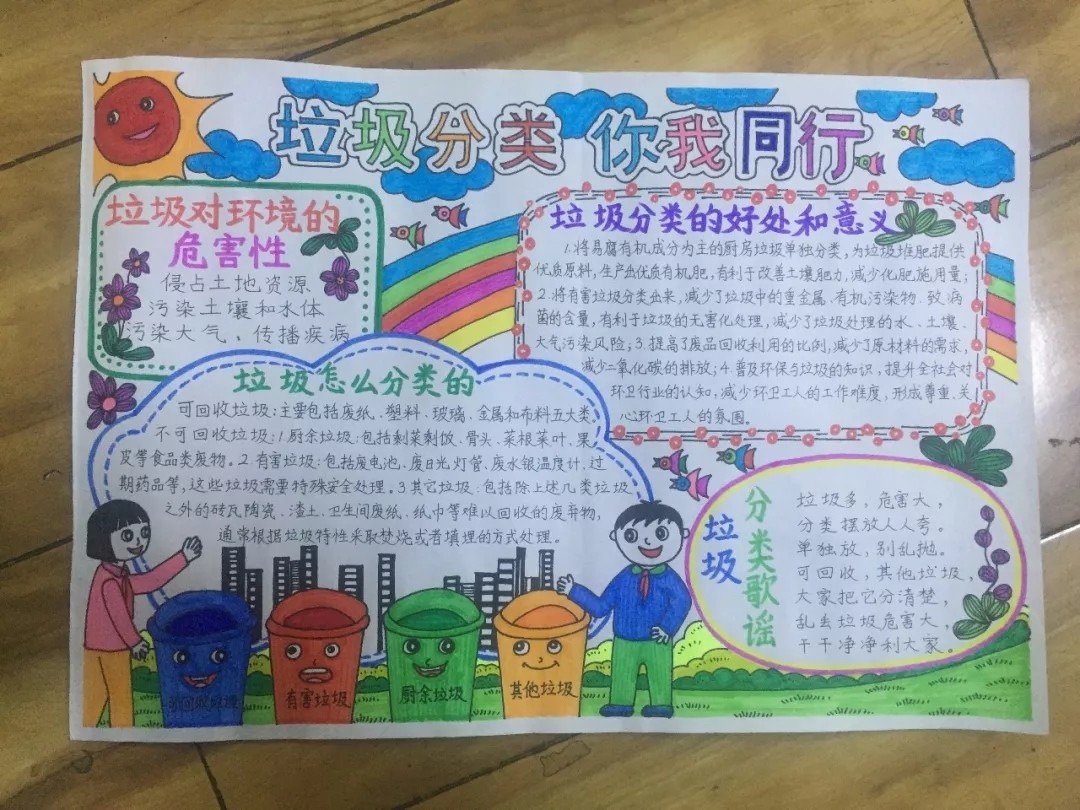 垃圾分类 你我同行
垃圾对环境的
危害性
侵占土地资源
污染土壤和水体
污染大气，传播疾病
垃圾分类的好处和意义
1.将易腐有机成分为主的厨房垃圾单独分类，为垃圾堆肥提供
优质原料，生产出优质有机肥，有利于改善土壤肥力，减少化肥施用量；
2.将有害垃圾分类出来，减少了垃圾中的重金属、有机污染物、致病
菌的含量，有利于垃圾的无害化处理，减少了垃圾处理的水、土壤、
大气污染风险；3.提高了废品回收利用的比例，减少了原材料的需求，
减少二氧化碳的排放；4.普及环保与垃圾的知识，提升全社会对
环卫行业的认知，减少环卫工人的工作难度，形成尊重、关
心环卫工人的氛围。
垃圾怎么分类的
可回收垃圾：主要包括废纸、塑料、玻璃、金属和布料五大类
不可回收垃圾：1.厨余垃圾：包括剩菜剩饭、骨头、菜根菜叶、果
皮等食品类废物。2.有害垃圾：包括废电池、废日光灯管、废水银温度计、过
期药品等，这些垃圾需要特殊安全处理。3.其它垃圾：包括除上述几类垃圾
之外的砖瓦陶瓷、渣土、卫生间废纸、纸巾等难以回收的废弃物，
通常根据垃圾特性采取焚烧或者填埋的方式处理。
垃圾
分类歌谣
垃圾多，危害大，
分类摆放人人夸。
单独放，别乱抛。
可回收，其他垃圾，
大家把它分清楚，
乱丢垃圾危害大，
干干净净利大家。
可回收垃圾
有害垃圾
厨余垃圾
其他垃圾